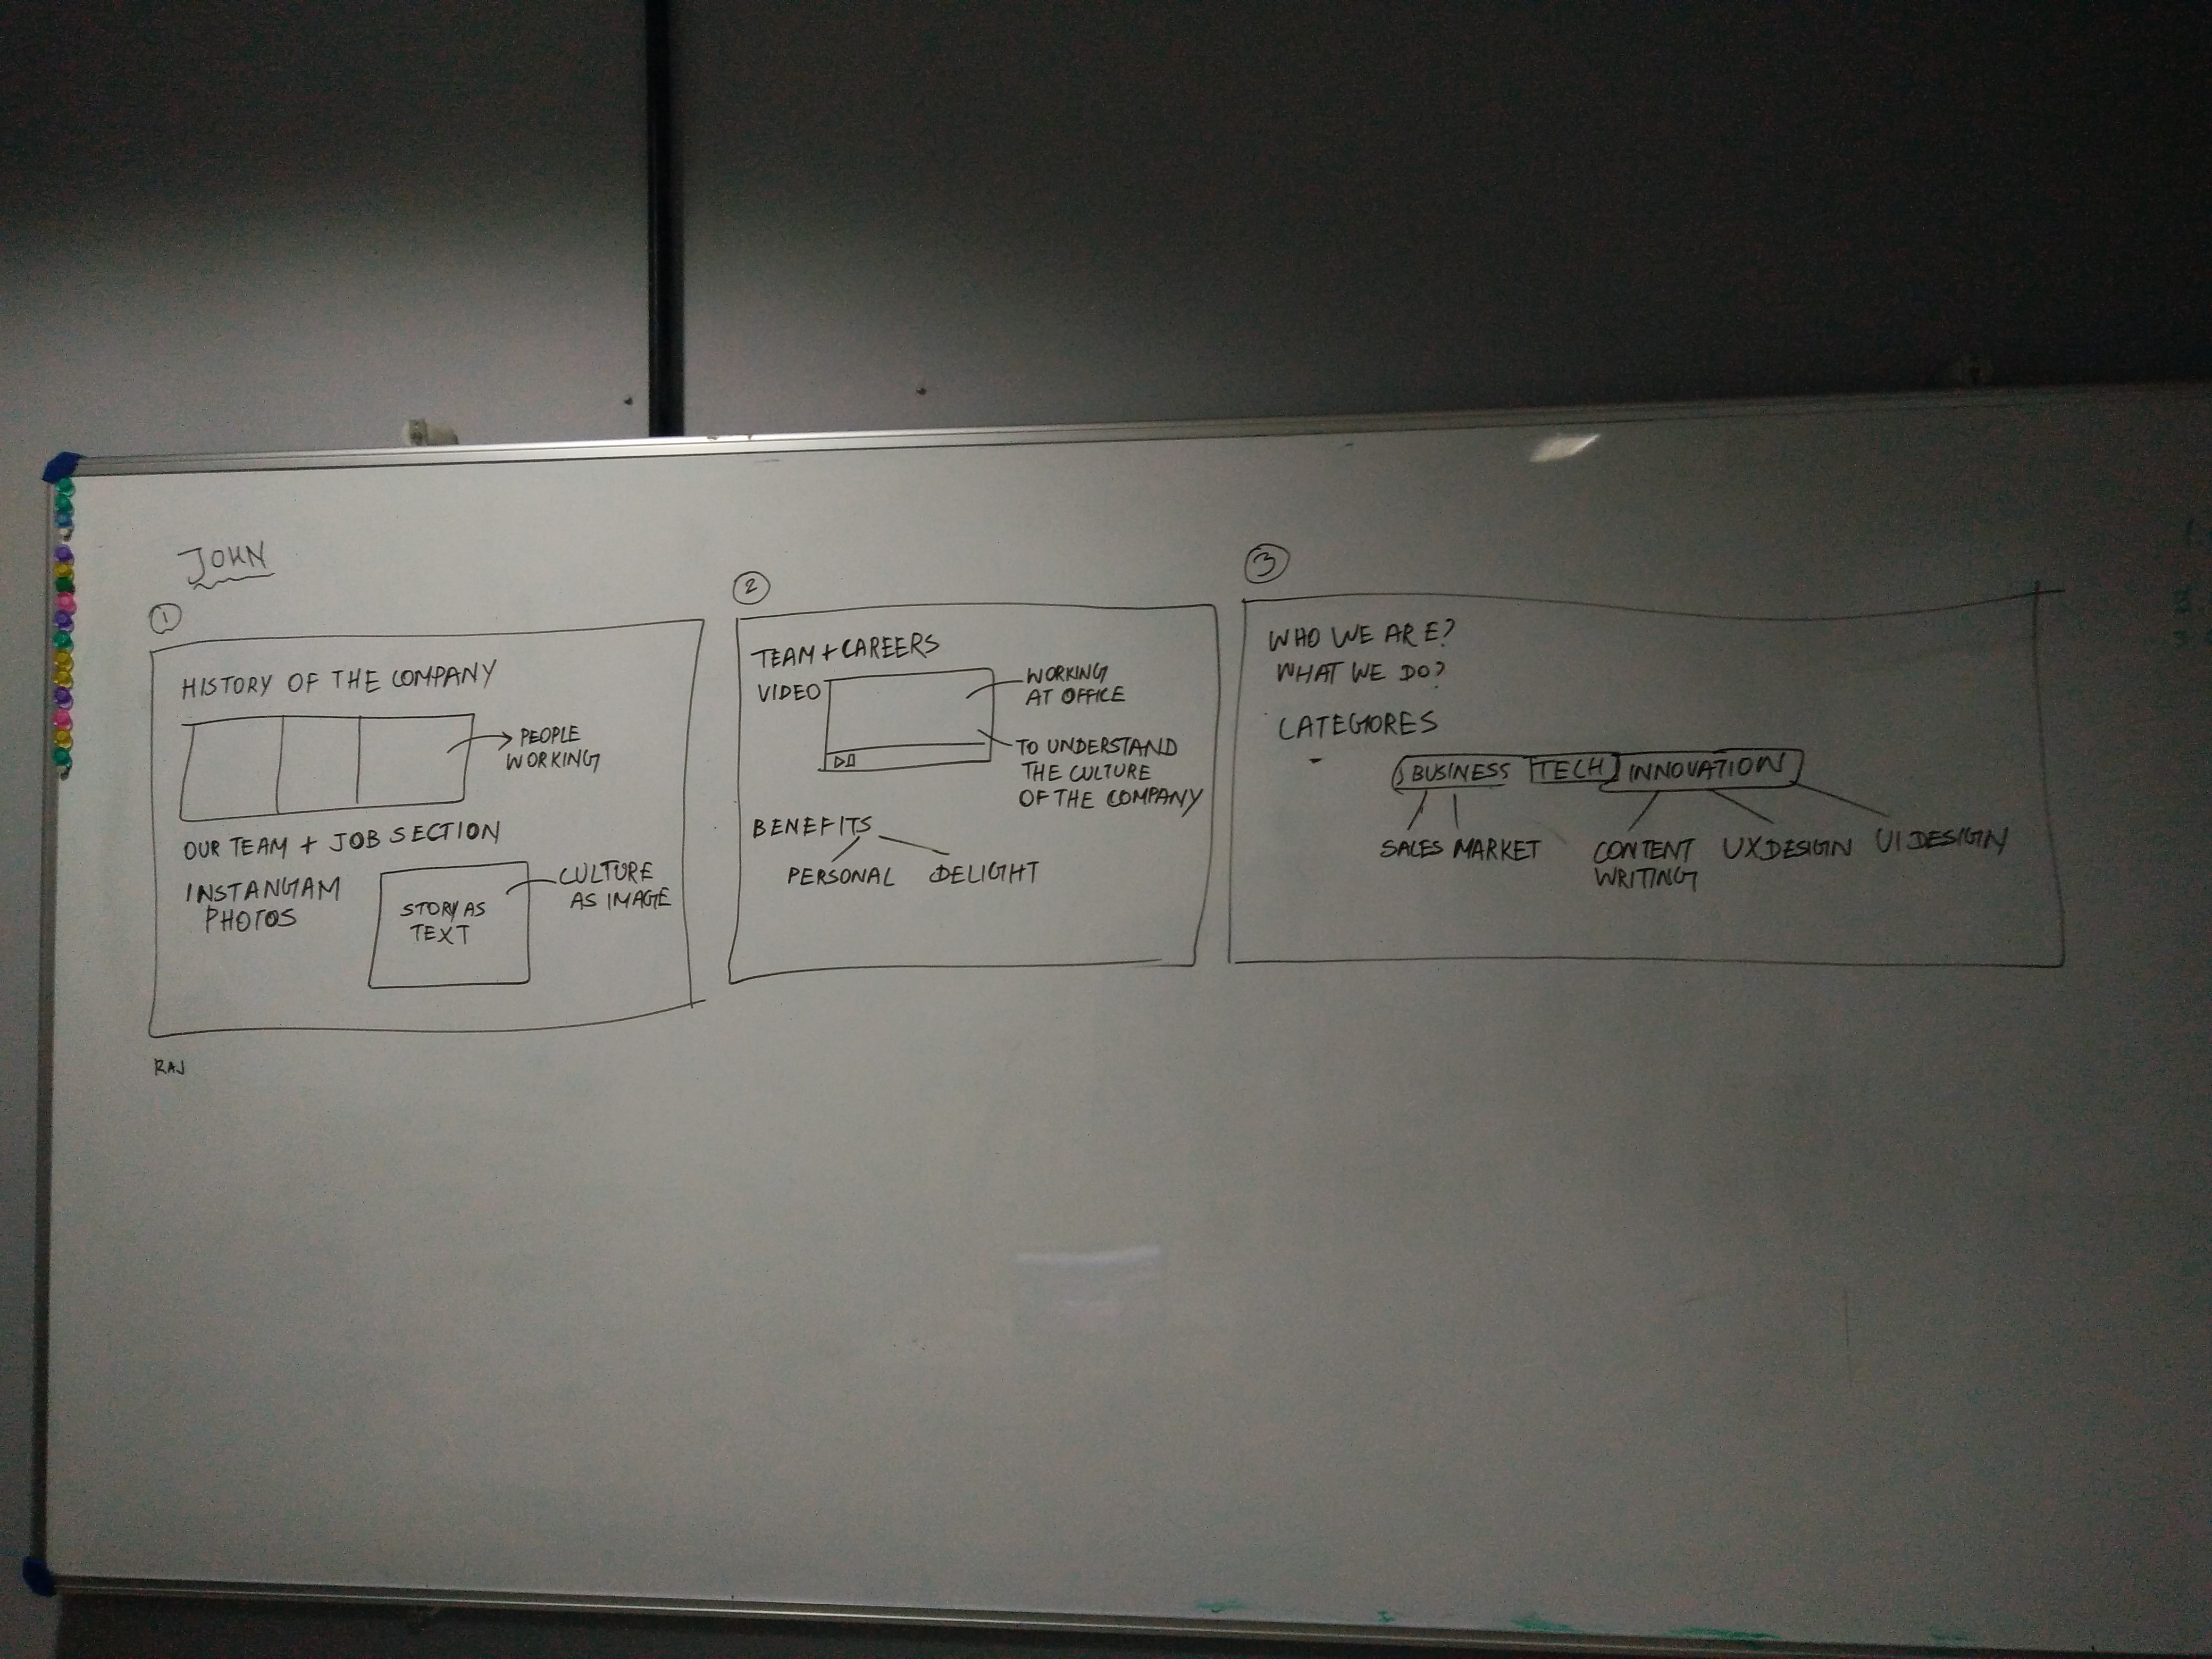 JOHN
1
HISTORY OF THE COMPANY
PEOPLE
WORKING
OUR TEAM + JOB SECTION
INSTANGAM
PHOTOS
STORY AS
TEXT
CULTURE
AS IMAGE
RAJ
2
TEAM + CAREERS
VIDEO
WORKING
AT OFFICE
TO UNDERSTAND
THE CULTURE
OF THE COMPANY
BENEFITS
PERSONAL DELIGHT
3
WHO WE ARE?
WHAT WE DO?
CATEGORES
-
BUSINESS TECH INNOVATION
SALES MARKET CONTENT UX DESIGN UI DESIGN
WRITING